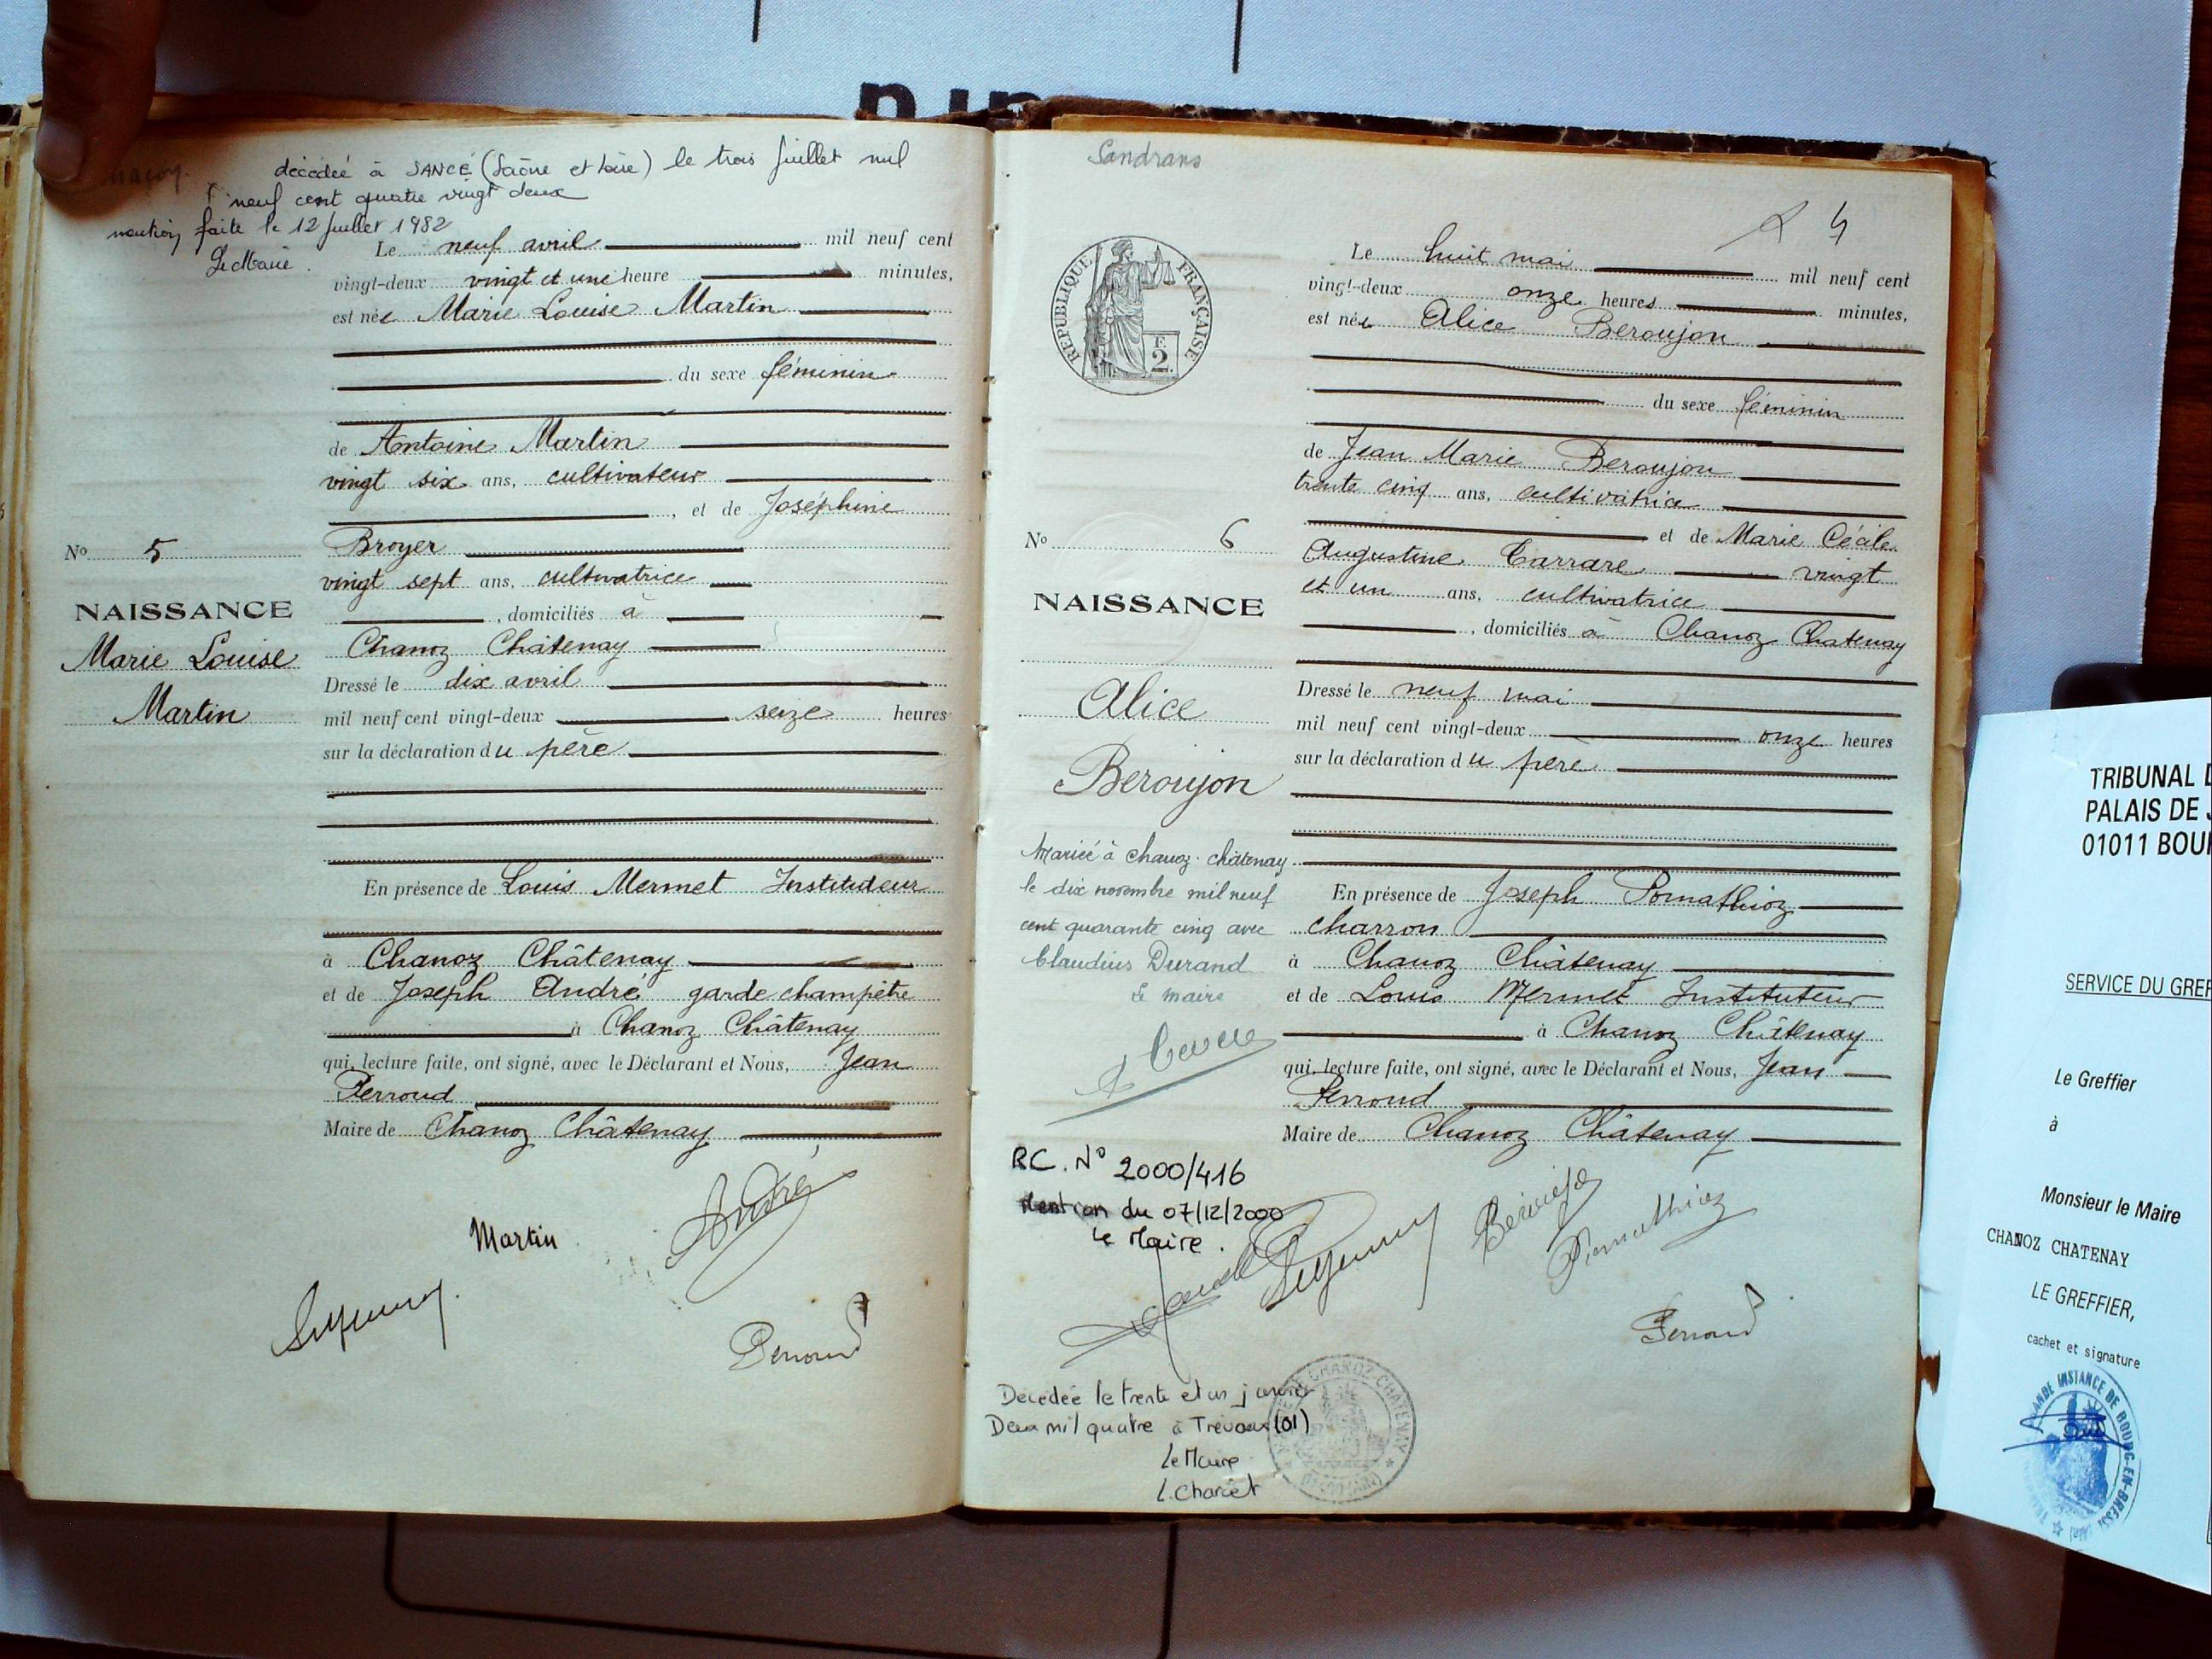 décédée à SANCÉ (Saône et Loire) le trois Juillet mil
neuf cent quatre vingt deux
mention faite le 12 Juillet 1982
Le Maire.
Le neuf avril mil neuf cent
vingt-deux vingt et une heure minutes,
est née Marie Louise Martin
du sexe féminin
de Antoine Martin
vingt six ans, cultivateur
, et de Joséphine
Broyer
vingt sept ans, cultivatrice
, domiciliés à
Chanoz Châtenay
Dressé le dix avril
mil neuf cent vingt-deux seize heures
sur la déclaration du père
En présence de Louis Mermet Instituteur
à Chanoz Châtenay
et de Joseph André garde champêtre
à Chanoz Châtenay
qui, lecture faite, ont signé, avec le Déclarant et Nous, Jean
Perroud
Maire de Chanoz Châtenay
No 5
NAISSANCE
Marie Louise
Martin
Martin
André
Perroud
Sandrans
4
REPUBLIQUE FRANÇAISE
F.
2
Le huit mai mil neuf cent
vingt-deux onze heures minutes,
est née Alice Beroujon
du sexe féminin
de Jean Marie Beroujon
trente cinq ans, cultivatrice
et de Marie Cécile
Augustine Carrare vingt
et un ans, cultivatrice
, domiciliés à Chanoz Chatenay
Dressé le neuf mai
mil neuf cent vingt-deux onze heures
sur la déclaration du père
En présence de Joseph Pomathioz
charron
à Chanoz Châtenay
et de Louis Mermet Instituteur
à Chanoz Châtenay
qui, lecture faite, ont signé, avec le Déclarant et Nous, Jean
Perroud
Maire de Chanoz Châtenay
No 6
NAISSANCE
Alice
Beroujon
Mariée à Chanoz-châtenay
le dix novembre mil neuf
cent quarante cinq avec
Claudius Durand
Le maire
RC. N° 2000/416
Mention du 07/12/2000
Le Maire.
Pomathioz
Perroud
Décédée le trente et un janvier
Deux mil quatre à Trévoux (01)
Le Maire
CHANOZ CHATENAY
TRIBUNAL
PALAIS DE
01011
SERVICE DU
Le Greffier
à
Monsieur le Maire
CHANOZ CHATENAY
LE GREFFIER,
cachet et signature
INSTANCE DE BOURG-EN-BRESSE